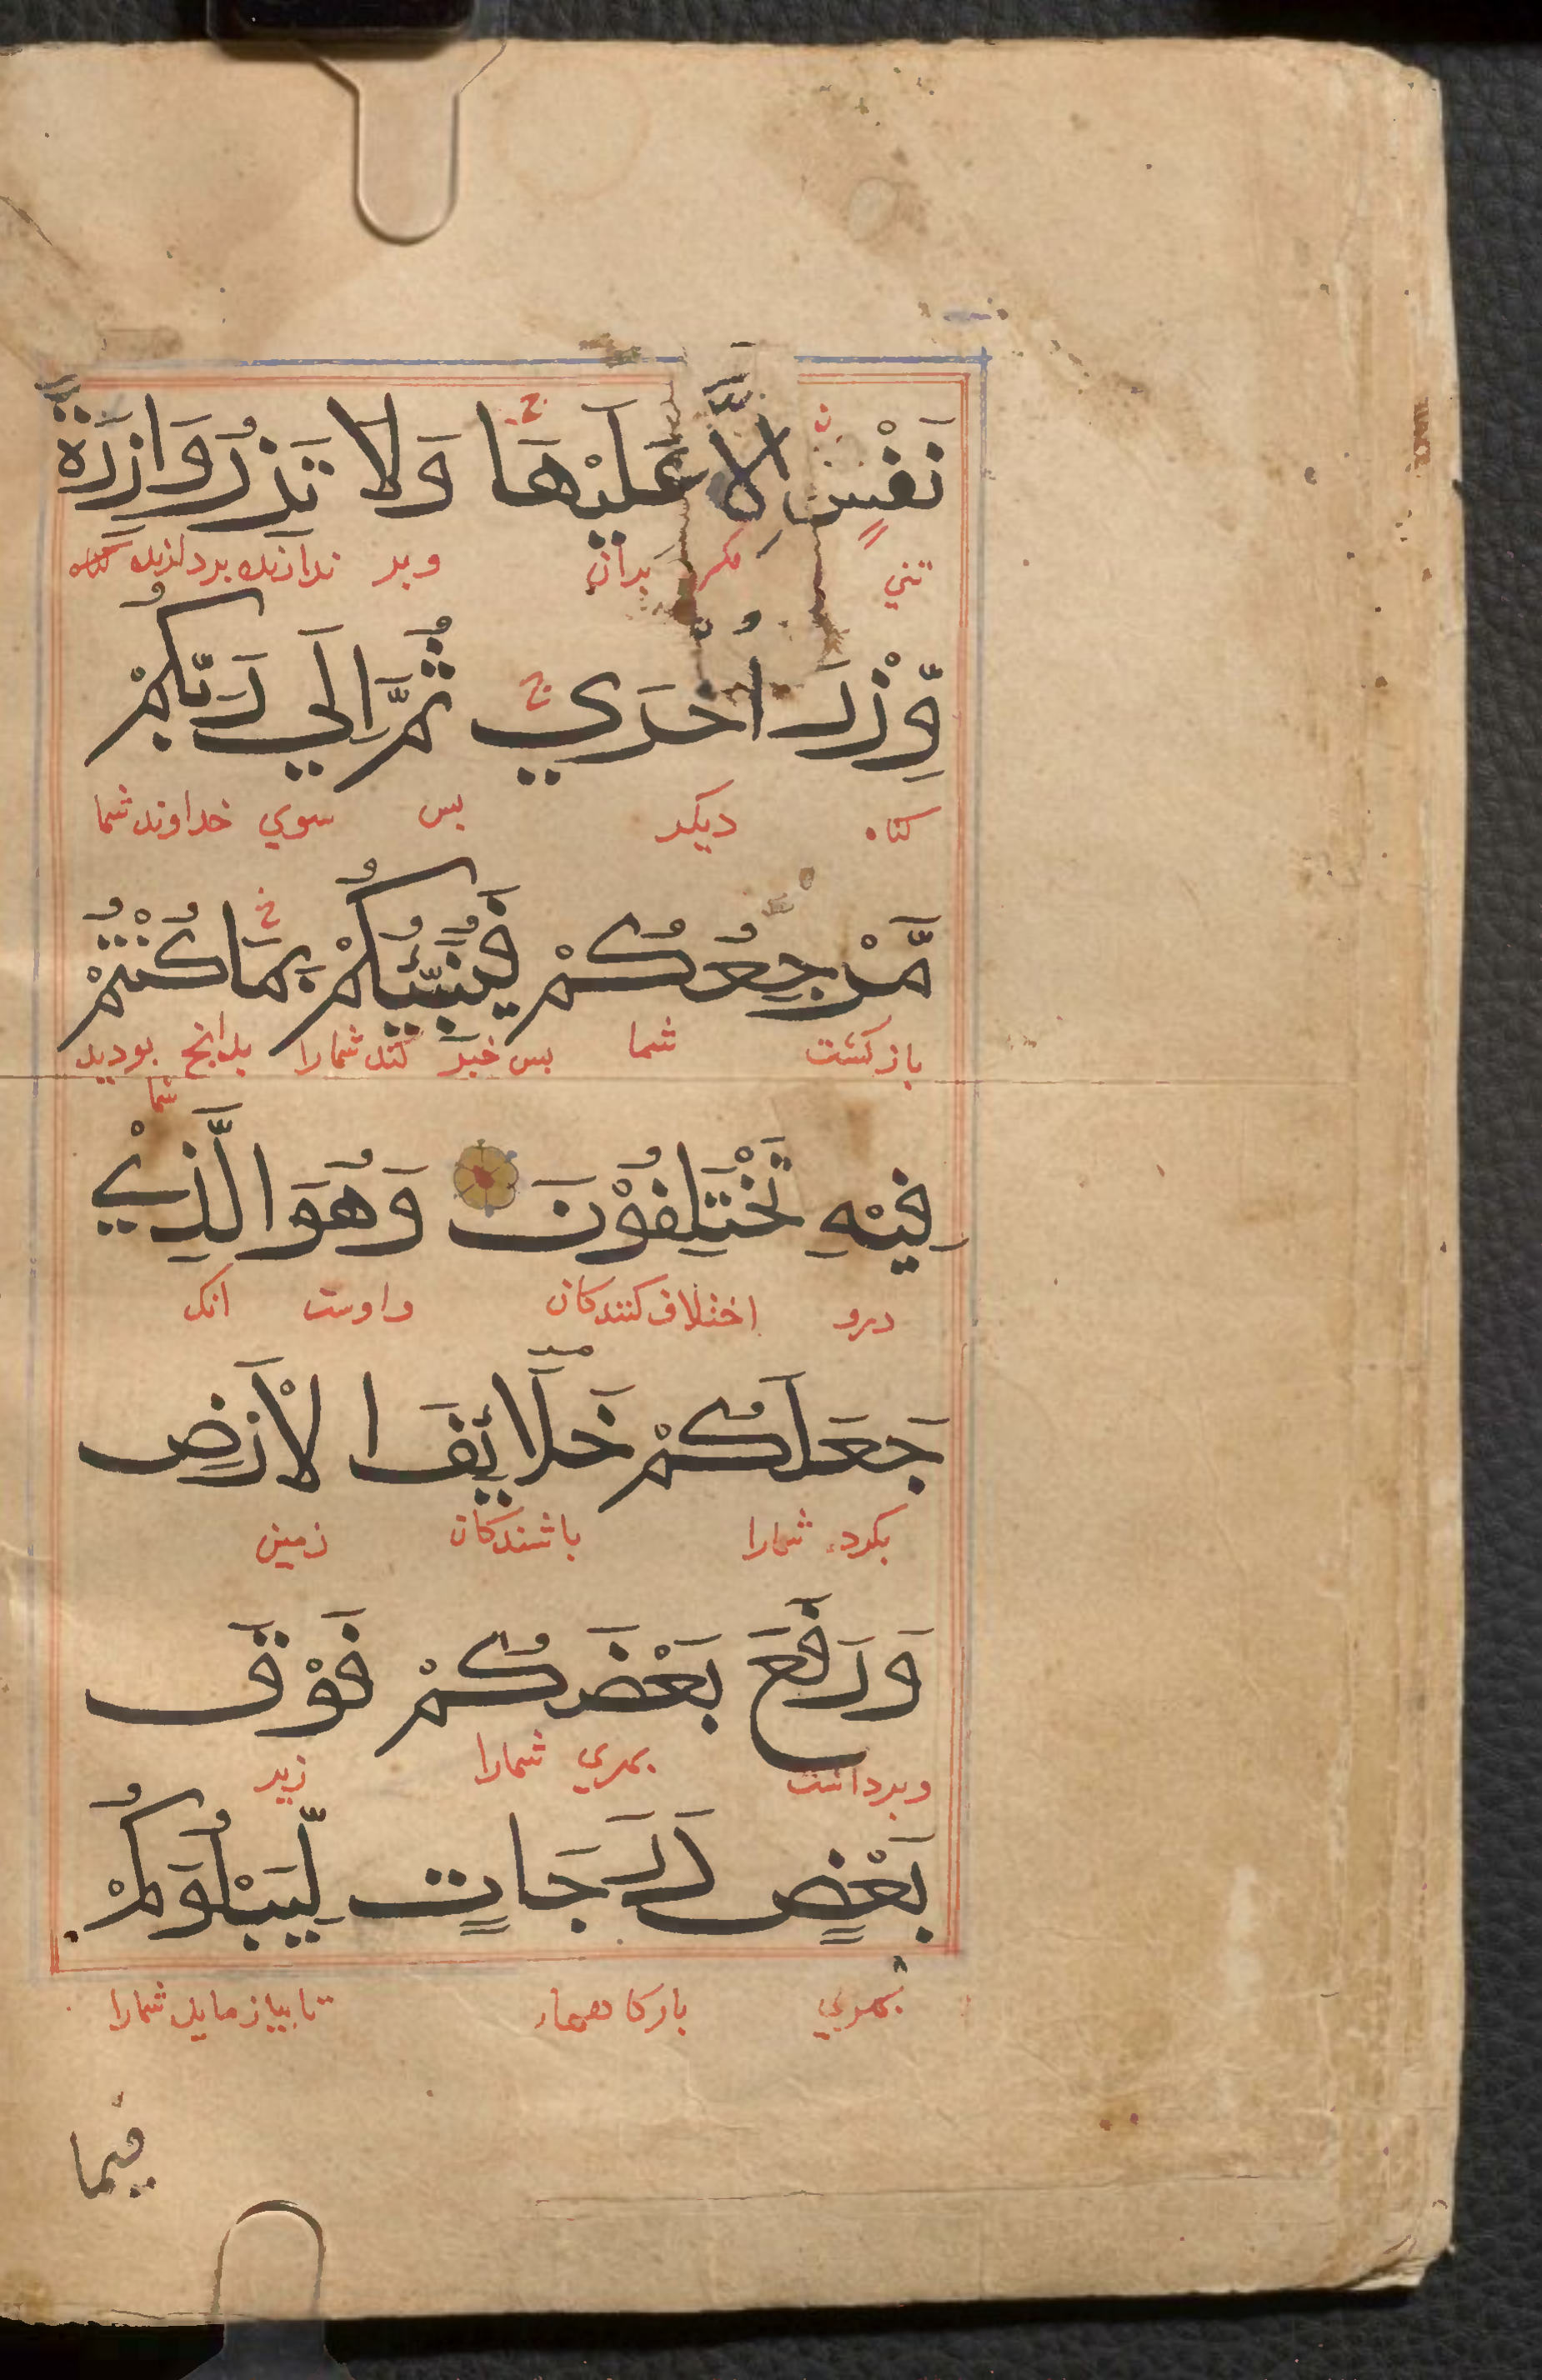 نَفْسٍ اِلَّا عَلَيْهَا ج وَلَا تَزِرُ وَازِرَةٌ
تني مكر بدان وبر ندارنده بردارنده
وِّزْرَ اُخْرَي ج ثُمَّ اِلَي رَبِّكُمْ
كناه ديكر بس سوي خداوند شما
مَّرْجِعُكُمْ فَيُنَبِّئُكُمْ بِمَا كُنْتُمْ
بازكشت شما بس خبر كند شمارا بدانچ بوديد
شما
فِيْهِ تَخْتَلِفُوْنَ وَهُوَ الَّذِيْ
درو اختلاف كنندكان واوست انك
جَعَلَكُمْ خَلَائِفَ الْاَرْضِ
بكرد شمارا باشندكان زمين
وَرَفَعَ بَعْضَكُمْ فَوْقَ
وبرداشت بهري شمارا زبر
بَعْضٍ دَرَجَاتٍ لِّيَبْلُوَكُمْ
بهري تا بيازمايد شمارا
فيما